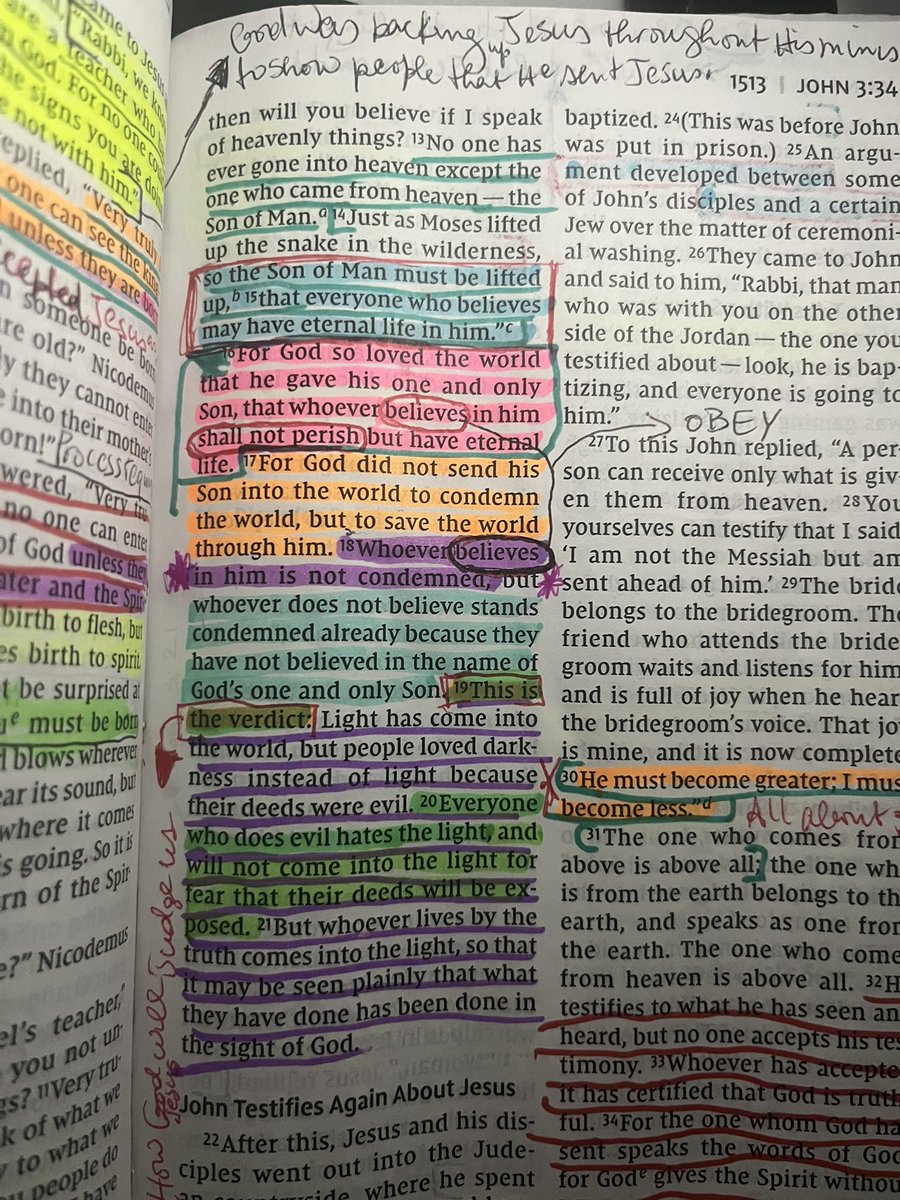 God was backing up Jesus throughout His minis
to show people that He sent Jesus.
1513 | JOHN 3:34
came to Jesus
"Rabbi, we know
a teacher who
God. For no one
the signs you are doi
not with him."
replied, "Very truly
one can see the
unless they are
accepted Jesus
someone be born
are old?" Nicodemus
they cannot enter
into their mother's
orn!"
wered, "Very tru
no one can enter
of God unless they
ater and the Spir
birth to flesh, but
es birth to spirit.
t be surprised at
e must be born
d blows wherever
ear its sound, but
where it comes
is going. So it is
rn of the Spir-
e?" Nicodemus
el's teacher,"
you not un-
gs? 11Very tru-
k of what we
y to what we
you people do
then will you believe if I speak
of heavenly things? 13No one has
ever gone into heaven except the
one who came from heaven — the
Son of Man.a 14Just as Moses lifted
up the snake in the wilderness,
so the Son of Man must be lifted
up,b 15that everyone who believes
may have eternal life in him."c
16For God so loved the world
that he gave his one and only
Son, that whoever believes in him
shall not perish but have eternal
life. 17For God did not send his
Son into the world to condemn
the world, but to save the world
through him. 18Whoever believes
in him is not condemned, but
whoever does not believe stands
condemned already because they
have not believed in the name of
God's one and only Son. 19This is
the verdict: Light has come into
the world, but people loved dark-
ness instead of light because
their deeds were evil. 20Everyone
who does evil hates the light, and
will not come into the light for
fear that their deeds will be ex-
posed. 21But whoever lives by the
truth comes into the light, so that
it may be seen plainly that what
they have done has been done in
the sight of God.
How God will Judge us
Jesus
John Testifies Again About Jesus
22After this, Jesus and his dis-
ciples went out into the Jude-
an countryside, where he spent
baptized. 24(This was before John
was put in prison.) 25An argu-
ment developed between some
of John's disciples and a certain
Jew over the matter of ceremoni-
al washing. 26They came to John
and said to him, "Rabbi, that man
who was with you on the other
side of the Jordan — the one you
testified about — look, he is bap-
tizing, and everyone is going to
him."
OBEY
27To this John replied, "A per-
son can receive only what is giv-
en them from heaven. 28You
yourselves can testify that I said,
'I am not the Messiah but am
sent ahead of him.' 29The bride
belongs to the bridegroom. The
friend who attends the bride-
groom waits and listens for him,
and is full of joy when he hear
the bridegroom's voice. That joy
is mine, and it is now complete
30He must become greater; I mus
become less."d
All about
31The one who comes from
above is above all; the one wh
is from the earth belongs to the
earth, and speaks as one from
the earth. The one who come
from heaven is above all. 32H
testifies to what he has seen an
heard, but no one accepts his tes
timony. 33Whoever has accepte
it has certified that God is truth
ful. 34For the one whom God ha
sent speaks the words of God
for Gode gives the Spirit withou